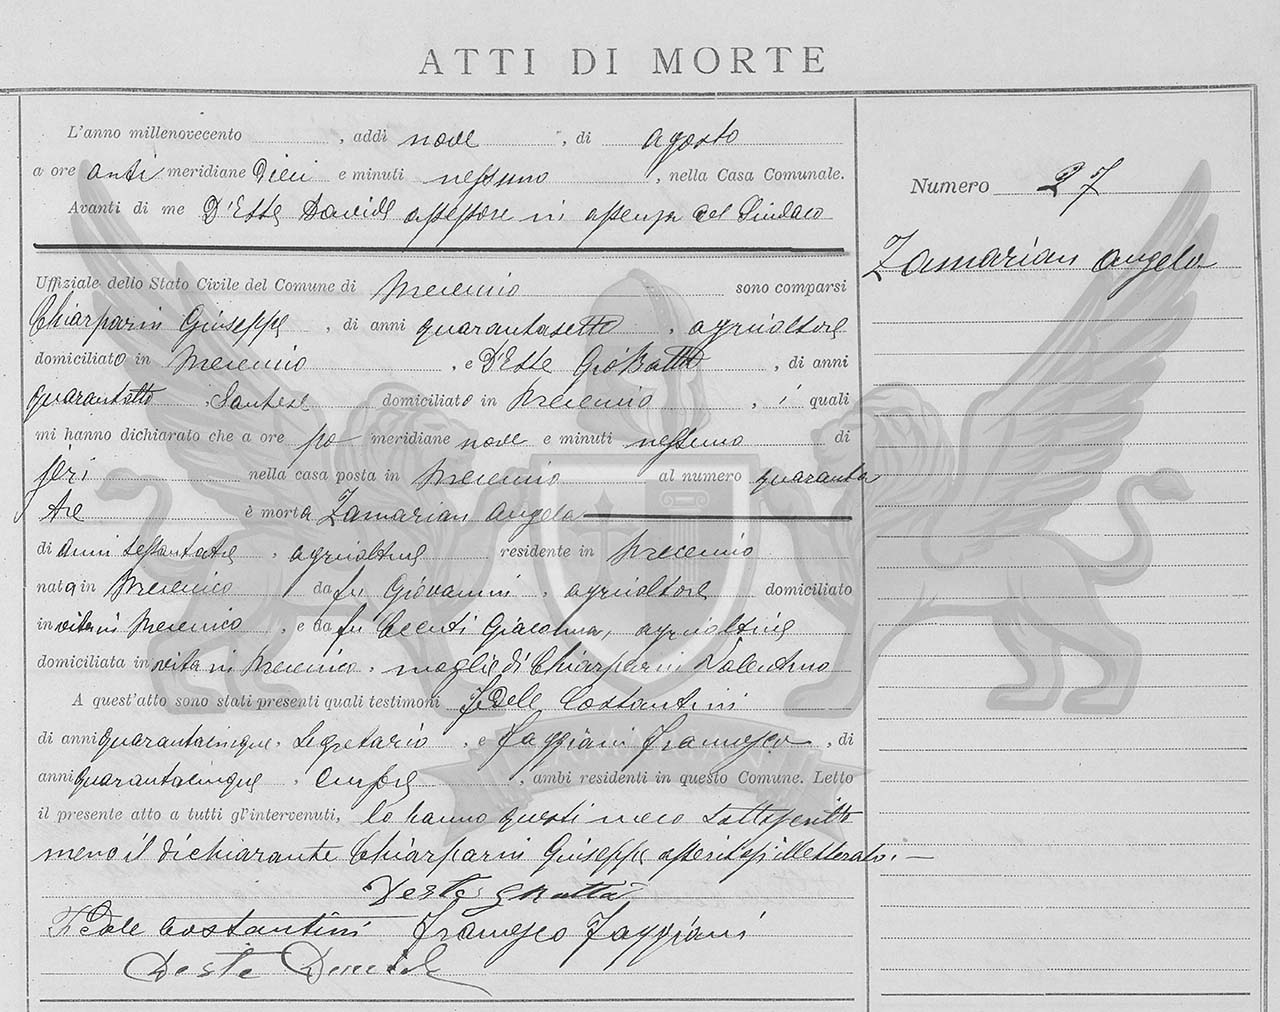 ATTI DI MORTE
L'anno millenovecento , addi nove , di agosto
a ore anti meridiane dieci e minuti nessuno , nella Casa Comunale.
Avanti di me D'Este Davide assessore in assenza del Sindaco
Uffiziale dello Stato Civile del Comune di sono comparsi
Chiarparin Giuseppe , di anni quarantasette , agricoltore
domiciliato in , e D'Este Gio Batta , di anni
quarantotto , Santese domiciliato in , i quali
mi hanno dichiarato che a ore po meridiane nove e minuti nessuno di
jeri nella casa posta in al numero quaranta
tre è morta Zamarian Angela
di anni settantatre , agricoltrice residente in
nata in da fu Giovanni , agricoltore domiciliato
in vita in , e da fu Giacoma, agricoltrice
domiciliata in vita in , moglie di Chiarparin Valentino
A quest'atto sono stati presenti quali testimoni Fedele Costantini
di anni quarantacinque, Segretario , e Faggiani Francesco , di
anni quarantacinque , Cursore , ambi residenti in questo Comune. Letto
il presente atto a tutti gl'intervenuti, lo hanno questi meco sottoscritto
meno il dichiarante Chiarparin Giuseppe assentesi illetterato. —
Deste G Batta
Fedele Costantini Francesco Faggiani
Deste Davide
Numero 27
Zamarian Angela